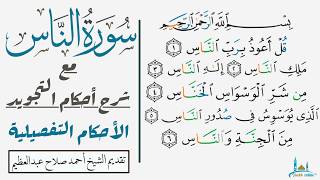 سورة الناس
مع
شرح أحكام التجويد
الأحكام التفصيلية
تقديم الشيخ أحمد صلاح عبد العظيم
بِسْمِ اللَّهِ الرَّحْمَٰنِ الرَّحِيمِ
قُلْ أَعُوذُ بِرَبِّ النَّاسِ ١
مَلِكِ النَّاسِ ٢ إِلَٰهِ النَّاسِ ٣
مِن شَرِّ الْوَسْوَاسِ الْخَنَّاسِ ٤
الَّذِي يُوَسْوِسُ فِي صُدُورِ النَّاسِ ٥
مِنَ الْجِنَّةِ وَالنَّاسِ ٦